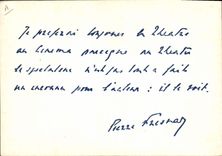 Je préfèrerai toujours le Théâtre
au Cinéma parceque au Théâtre
le spectateur n'est pas tout à fait
un inconnu pour l'acteur : il le voit.
Pierre Fresnay